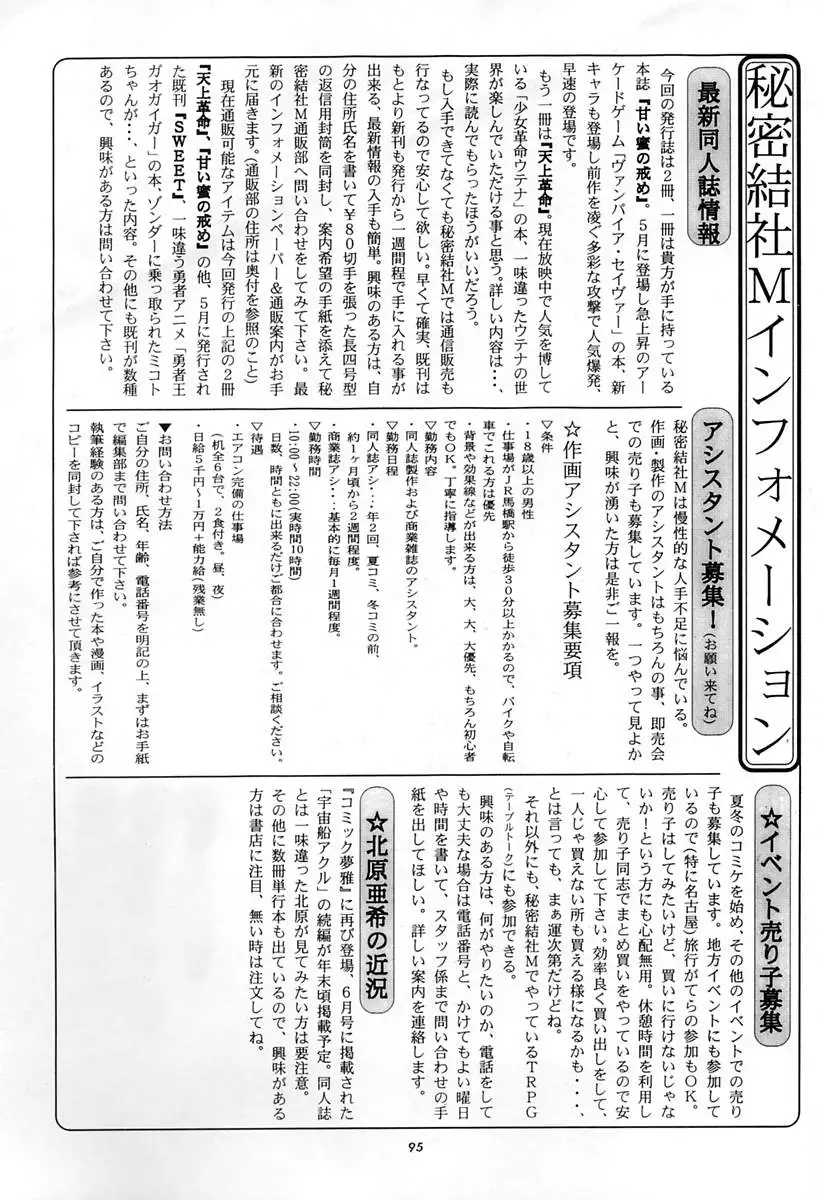 秘密結社Mインフォメーション
最新同人誌情報
今回の発行誌は2冊、一冊は貴方が手に持っている
本誌『甘い蜜の戒め』。5月に登場し急上昇のアー
ケードゲーム「ヴァンパイア・セイヴァー」の本、新
キャラも登場し前作を凌ぐ多彩な攻撃で人気爆発、
早速の登場です。
もう一冊は『天上革命』。現在放映中で人気を博して
いる「少女革命ウテナ」の本、一味違ったウテナの世
界が楽しんでいただける事と思う。詳しい内容は・・、
実際に読んでもらったほうがいいだろう。
もし入手できてなくても秘密結社Mでは通信販売も
行なってるので安心して欲しい。早くて確実、既刊は
もとより新刊も発行から一週間程で手に入れる事が
出来る、最新情報の入手も簡単。興味のある方は、自
分の住所氏名を書いて￥80切手を張った長四号型
の返信用封筒を同封し、案内希望の手紙を添えて秘
密結社M通販部へ問い合わせをしてみて下さい。最
新のインフォメーションペーパー&通販案内がお手
元に届きます。(通販部の住所は奥付を参照のこと)
現在通販可能なアイテムは今回発行の上記の2冊
『天上革命』、『甘い蜜の戒め』の他、5月に発行され
た既刊『SWEET』、一味違う勇者アニメ「勇者王
ガオガイガー」の本、ゾンダーに乗っ取られたミコト
ちゃんが・・、といった内容。その他にも既刊が数種
あるので、興味がある方は問い合わせて下さい。
アシスタント募集！(お願い来てね)
秘密結社Mは慢性的な人手不足に悩んでいる。
作画・製作のアシスタントはもちろんの事、即売会
での売り子も募集しています。一つやって見よか
と、興味が湧いた方は是非ご一報を。
☆作画アシスタント募集要項
▽条件
・18歳以上の男性
・仕事場がJR馬橋駅から徒歩30分以上かかるので、バイクや自転
車でこれる方は優先
・背景や効果線などが出来る方は、大、大、大優先、もちろん初心者
でもOK。丁寧に指導します。
▽勤務内容
・同人誌製作および商業雑誌のアシスタント。
▽勤務日程
・同人誌アシ・・・年2回、夏コミ、冬コミの前、
約1ヶ月頃から2週間程度。
・商業誌アシ・・・基本的に毎月1週間程度。
▽勤務時間
・10:00～22:00(実時間10時間)
日数、時間ともに出来るだけご都合に合わせます。ご相談ください。
▽待遇
・エアコン完備の仕事場
(机全6台で、2食付き。昼、夜)
・日給5千円～1万円+能力給(残業無し)
▼お問い合わせ方法
ご自分の住所、氏名、年齢、電話番号を明記の上、まずはお手紙
で編集部まで問い合わせて下さい。
執筆経験のある方は、ご自分で作った本や漫画、イラストなどの
コピーを同封して下されば参考にさせて頂きます。
☆イベント売り子募集
夏冬のコミケを始め、その他のイベントでの売り
子も募集しています。地方イベントにも参加して
いるので(特に名古屋)旅行がてらの参加もOK。
売り子はしてみたいけど、買いに行けないじゃな
いか！という方にも心配無用。休憩時間を利用し
て、売り子同志でまとめ買いをやっているので安
心して参加して下さい。効率良く買い出しをして、
一人じゃ買えない所も買える様になるかも・・・、
とは言っても、まぁ運次第だけどね。
それ以外にも、秘密結社MでやっているTRPG
(テーブルトーク)にも参加できる。
興味のある方は、何がやりたいのか、電話をして
も大丈夫な場合は電話番号と、かけてもよい曜日
や時間を書いて、スタッフ係まで問い合わせの手
紙を出してほしい。詳しい案内を連絡します。
☆北原亜希の近況
『コミック夢雅』に再び登場、6月号に掲載された
「宇宙船アクル」の続編が年末頃掲載予定。同人誌
とは一味違った北原が見てみたい方は要注意。
その他に数冊単行本も出ているので、興味がある
方は書店に注目、無い時は注文してね。
95